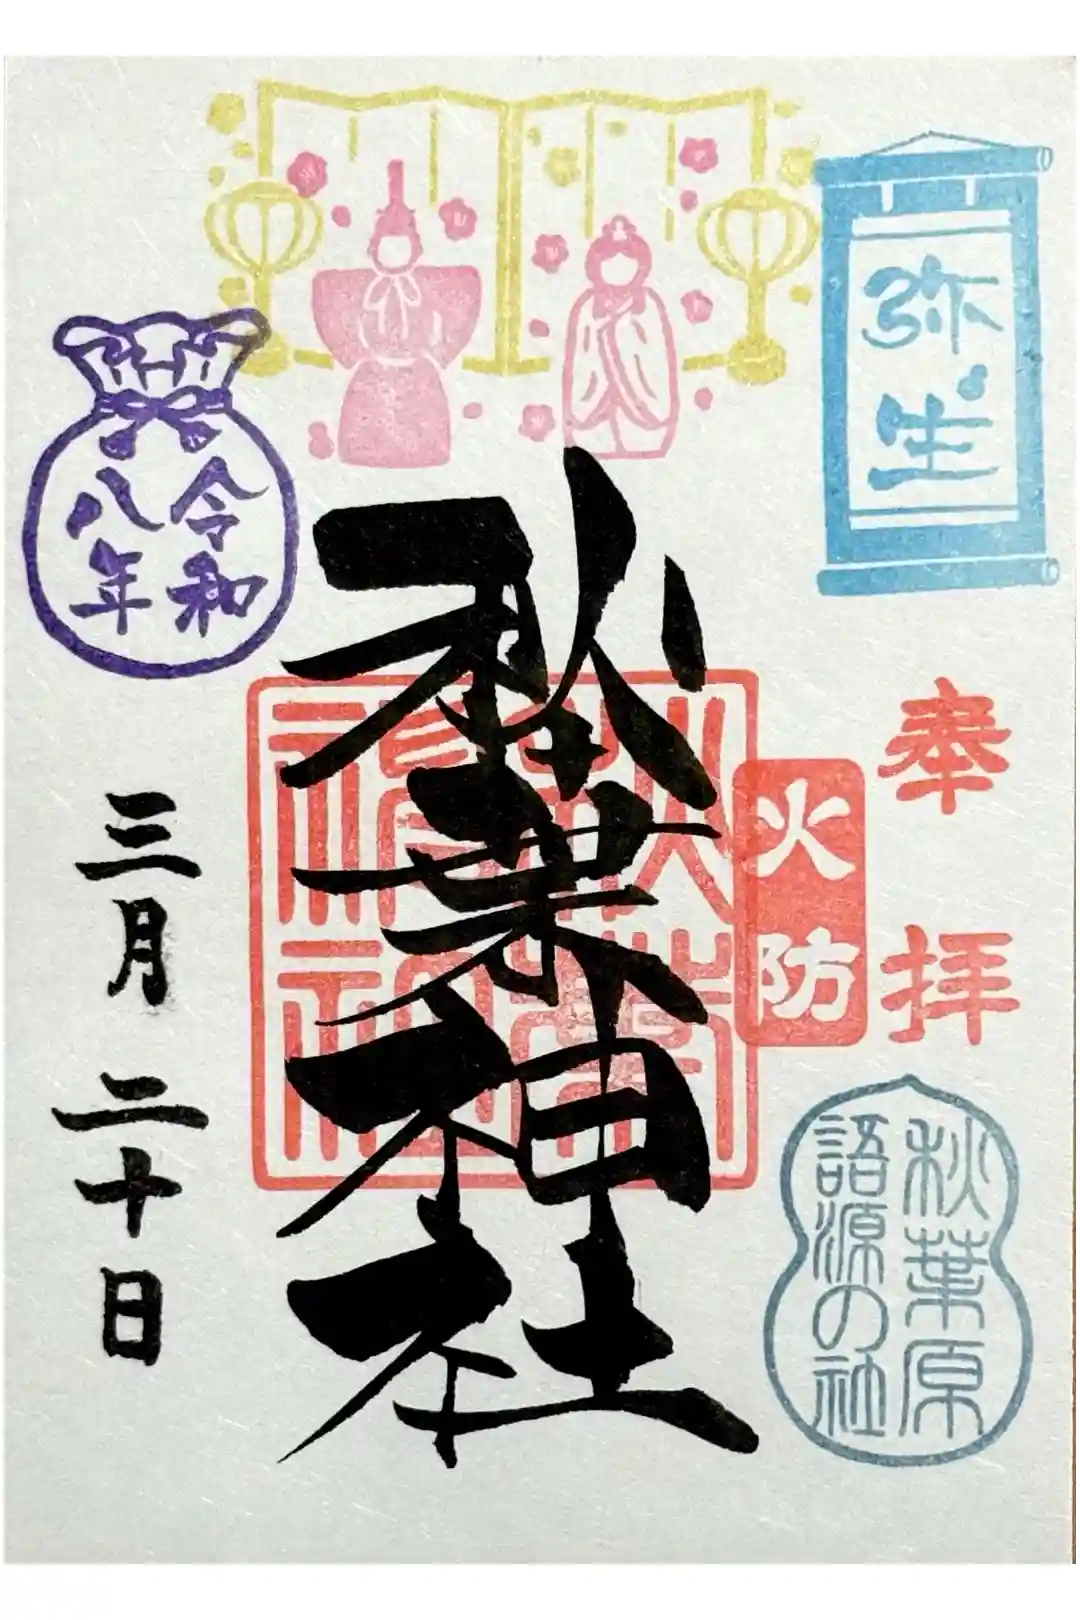 弥生
奉拝
火防
秋葉原
語源の社
秋葉神社
令和
八年
三月二十日